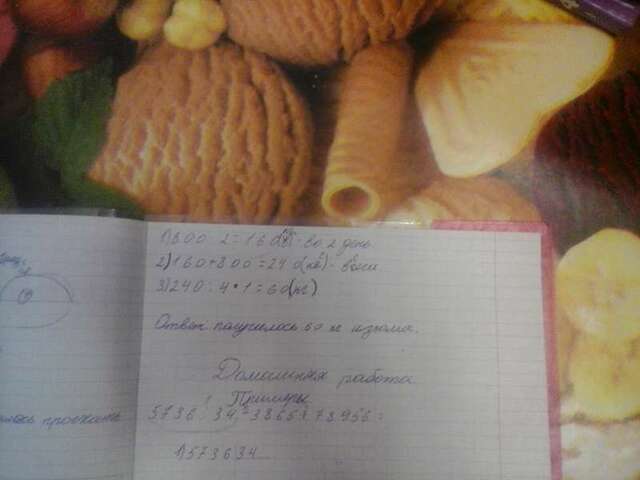 1) 800 : 2 = 160 (кг) - во 2 день.
2) 160 + 800 = 240 (кг) -
3) 240 : 4 • 1 = 60 (кг)
Ответ: получилось 60 кг изюма.
Домашняя работа
Примеры
проехать
5736 : 34 - 3865 + 78956 =
1) 5736 34